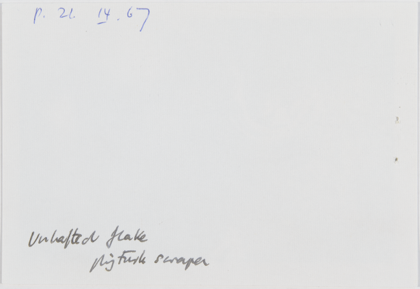 p. 21 14.67
Unhafted flake
pigtusk scraper